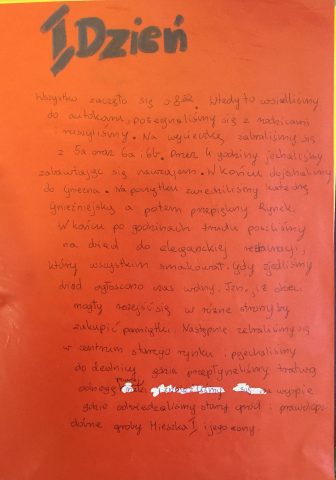 I Dzień
Wszystko zaczęło się o 8:00. Wtedy to wsiedliśmy
do autokaru, pożegnaliśmy się z rodzicami
i ruszyliśmy. Na wycieczkę zabraliśmy się
z 5a oraz 6a i 6b. Przez 4 godziny jechaliśmy
zabawiając się nawzajem. W końcu dojechaliśmy
do Gniezna. Na początku zwiedziliśmy katedrę
gnieźnieńską a potem przepiękny Rynek.
W końcu po godzinach trudu poszliśmy
na obiad do eleganckiej restauracji,
który wszystkim smakował. Gdy zjedliśmy
obiad ogłoszono czas wolny. Tzn., iż dzieci
mogły rozejść się w różne strony by
zakupić pamiątki. Następnie zebraliśmy się
w centrum starego rynku i pojechaliśmy
do Lednicy, gdzie przepłynęliśmy tratwą
na wyspie
gdzie odwiedzaliśmy stary gród i prawdopo-
dobne groby Mieszka I i jego żony.